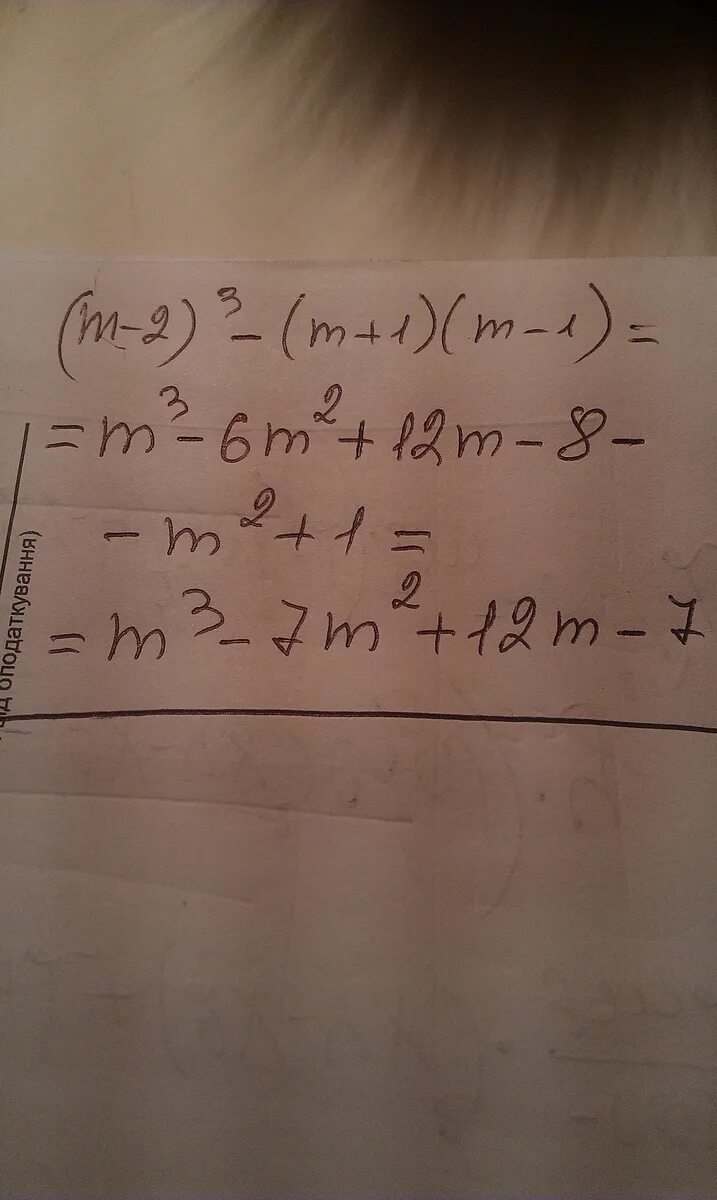 (m-2)³ - (m+1)(m-1) =
= m³ - 6m² + 12m - 8 -
- m² + 1 =
= m³ - 7m² + 12m - 7
оподаткування)